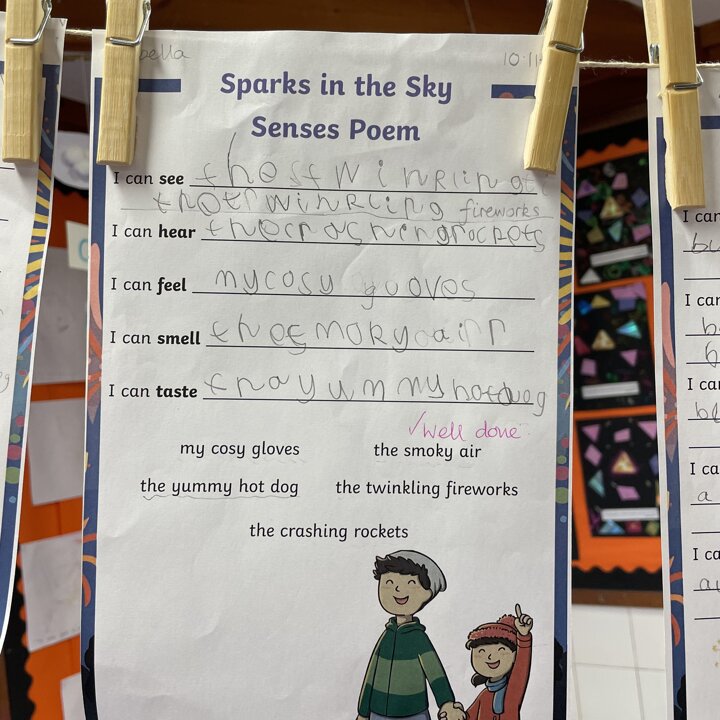 bella
10.11
Sparks in the Sky
Senses Poem
I can see thestwinRlingt
thetwinRling fireworks
I can hear thecrashingrockets
I can feel mycosy guoves
I can smell thesmokycainr
I can taste thayummyhotdog
✓well done
my cosy gloves the smoky air
the yummy hot dog the twinkling fireworks
the crashing rockets
I can
I can
I can
I ca
a
I ca